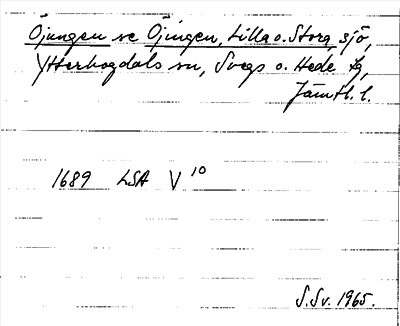 Öjungen se Öjingen, Lilla o. Stora, sjö,
Ytterhogdals sn, Svegs o. Hede tg,
Jämtl. l.
1689 LSA V 10
S.Sv. 1965.